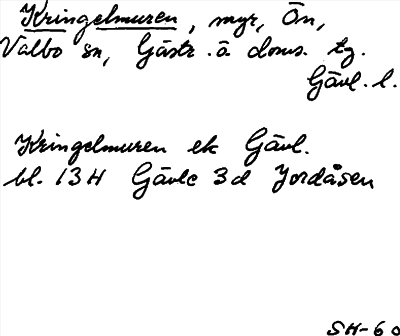 Kringelmuren, myr, Ön,
Valbo sn, Gästr. å doms. tg.
Gävl. l.
Kringelmuren ek Gävl.
bl. 13H Gävle 3d Jordåsen
SH-60